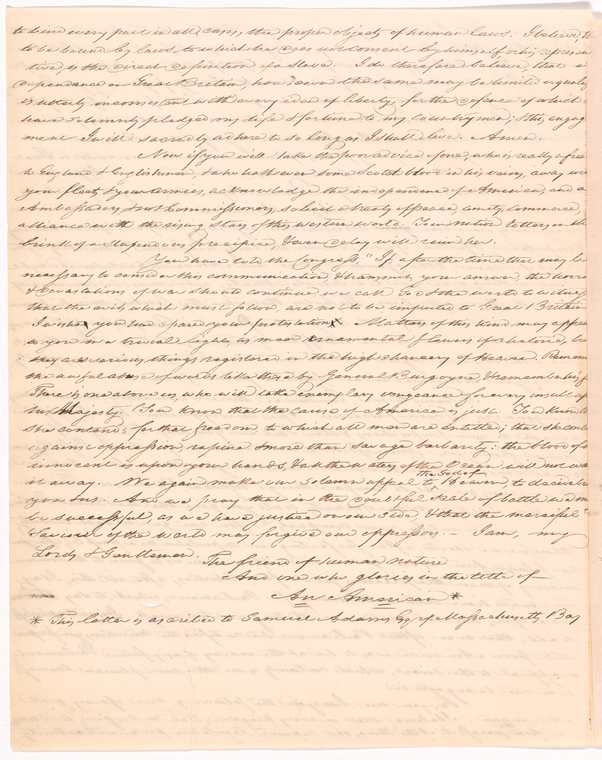 to bind every part in all cases, the proper objects of human laws. I believe,
to be bound by laws, to which he does not consent by himself or his represen
tive is the direct definition of a Slave. I do therefore believe, that a
dependance on Great Britain, however the same may be limited or qualif
is utterly inconsistent with every idea of liberty, for the defence of which
have solemnly pledged my life & fortune to my countrymen; & this engag
ment I will sacredly adhere to so long as I shall live. Amen.
Now if you will take the poor advice of one, who is really a frie
to England & Englishmen, & who hath even some Scotch blood in his veins, away with
your fleets & your armies, acknowledge the independence of America, and as
Ambassadors, & not Commissioners, solicit a treaty of peace, amity, commerce,
alliance with the rising Stars of this western World. Your nation totters on the
brink of a stupendous precipice, & even delay will ruin her.
You have told the Congress, "If after the time that may be
necessary to consider this communication & transmit your answer, the horro
& devastations of war should continue, we call God & the world to witness
that the evils which must follow are not to be imputed to Great Britain
I wish you had spared your protestation. Matters of this kind may appear
to you in a trivial light, as mere ornamental flowers of rhetoric, bu
they are serious things registered in the high chancery of Heaven. Remem
the awful abuse of words like these by General Burgoyne, & remember his f
There is one above us, who will take exemplary vengeance for every insult up
his Majesty. You know that the cause of America is just. You know th
she contends for that freedom to which all men are entitled; that she cont
against oppression, rapine & more than savage barbarity: the blood of
innocent is upon your hands, & all the waters of the Ocean will not wa
it away. We again make our solemn appeal to the God of Heaven to decide be
you & us. And we pray that in the doubtful scale of battle we m
be successful, as we have justice on our side, & that the merciful
Saviour of the world may forgive our oppressors. — I am, my
Lords & Gentlemen.
The friend of human nature
And one who glories in the title of
An American *
* This letter is ascribed to Samuel Adams Esqr of Massachusetts Bay